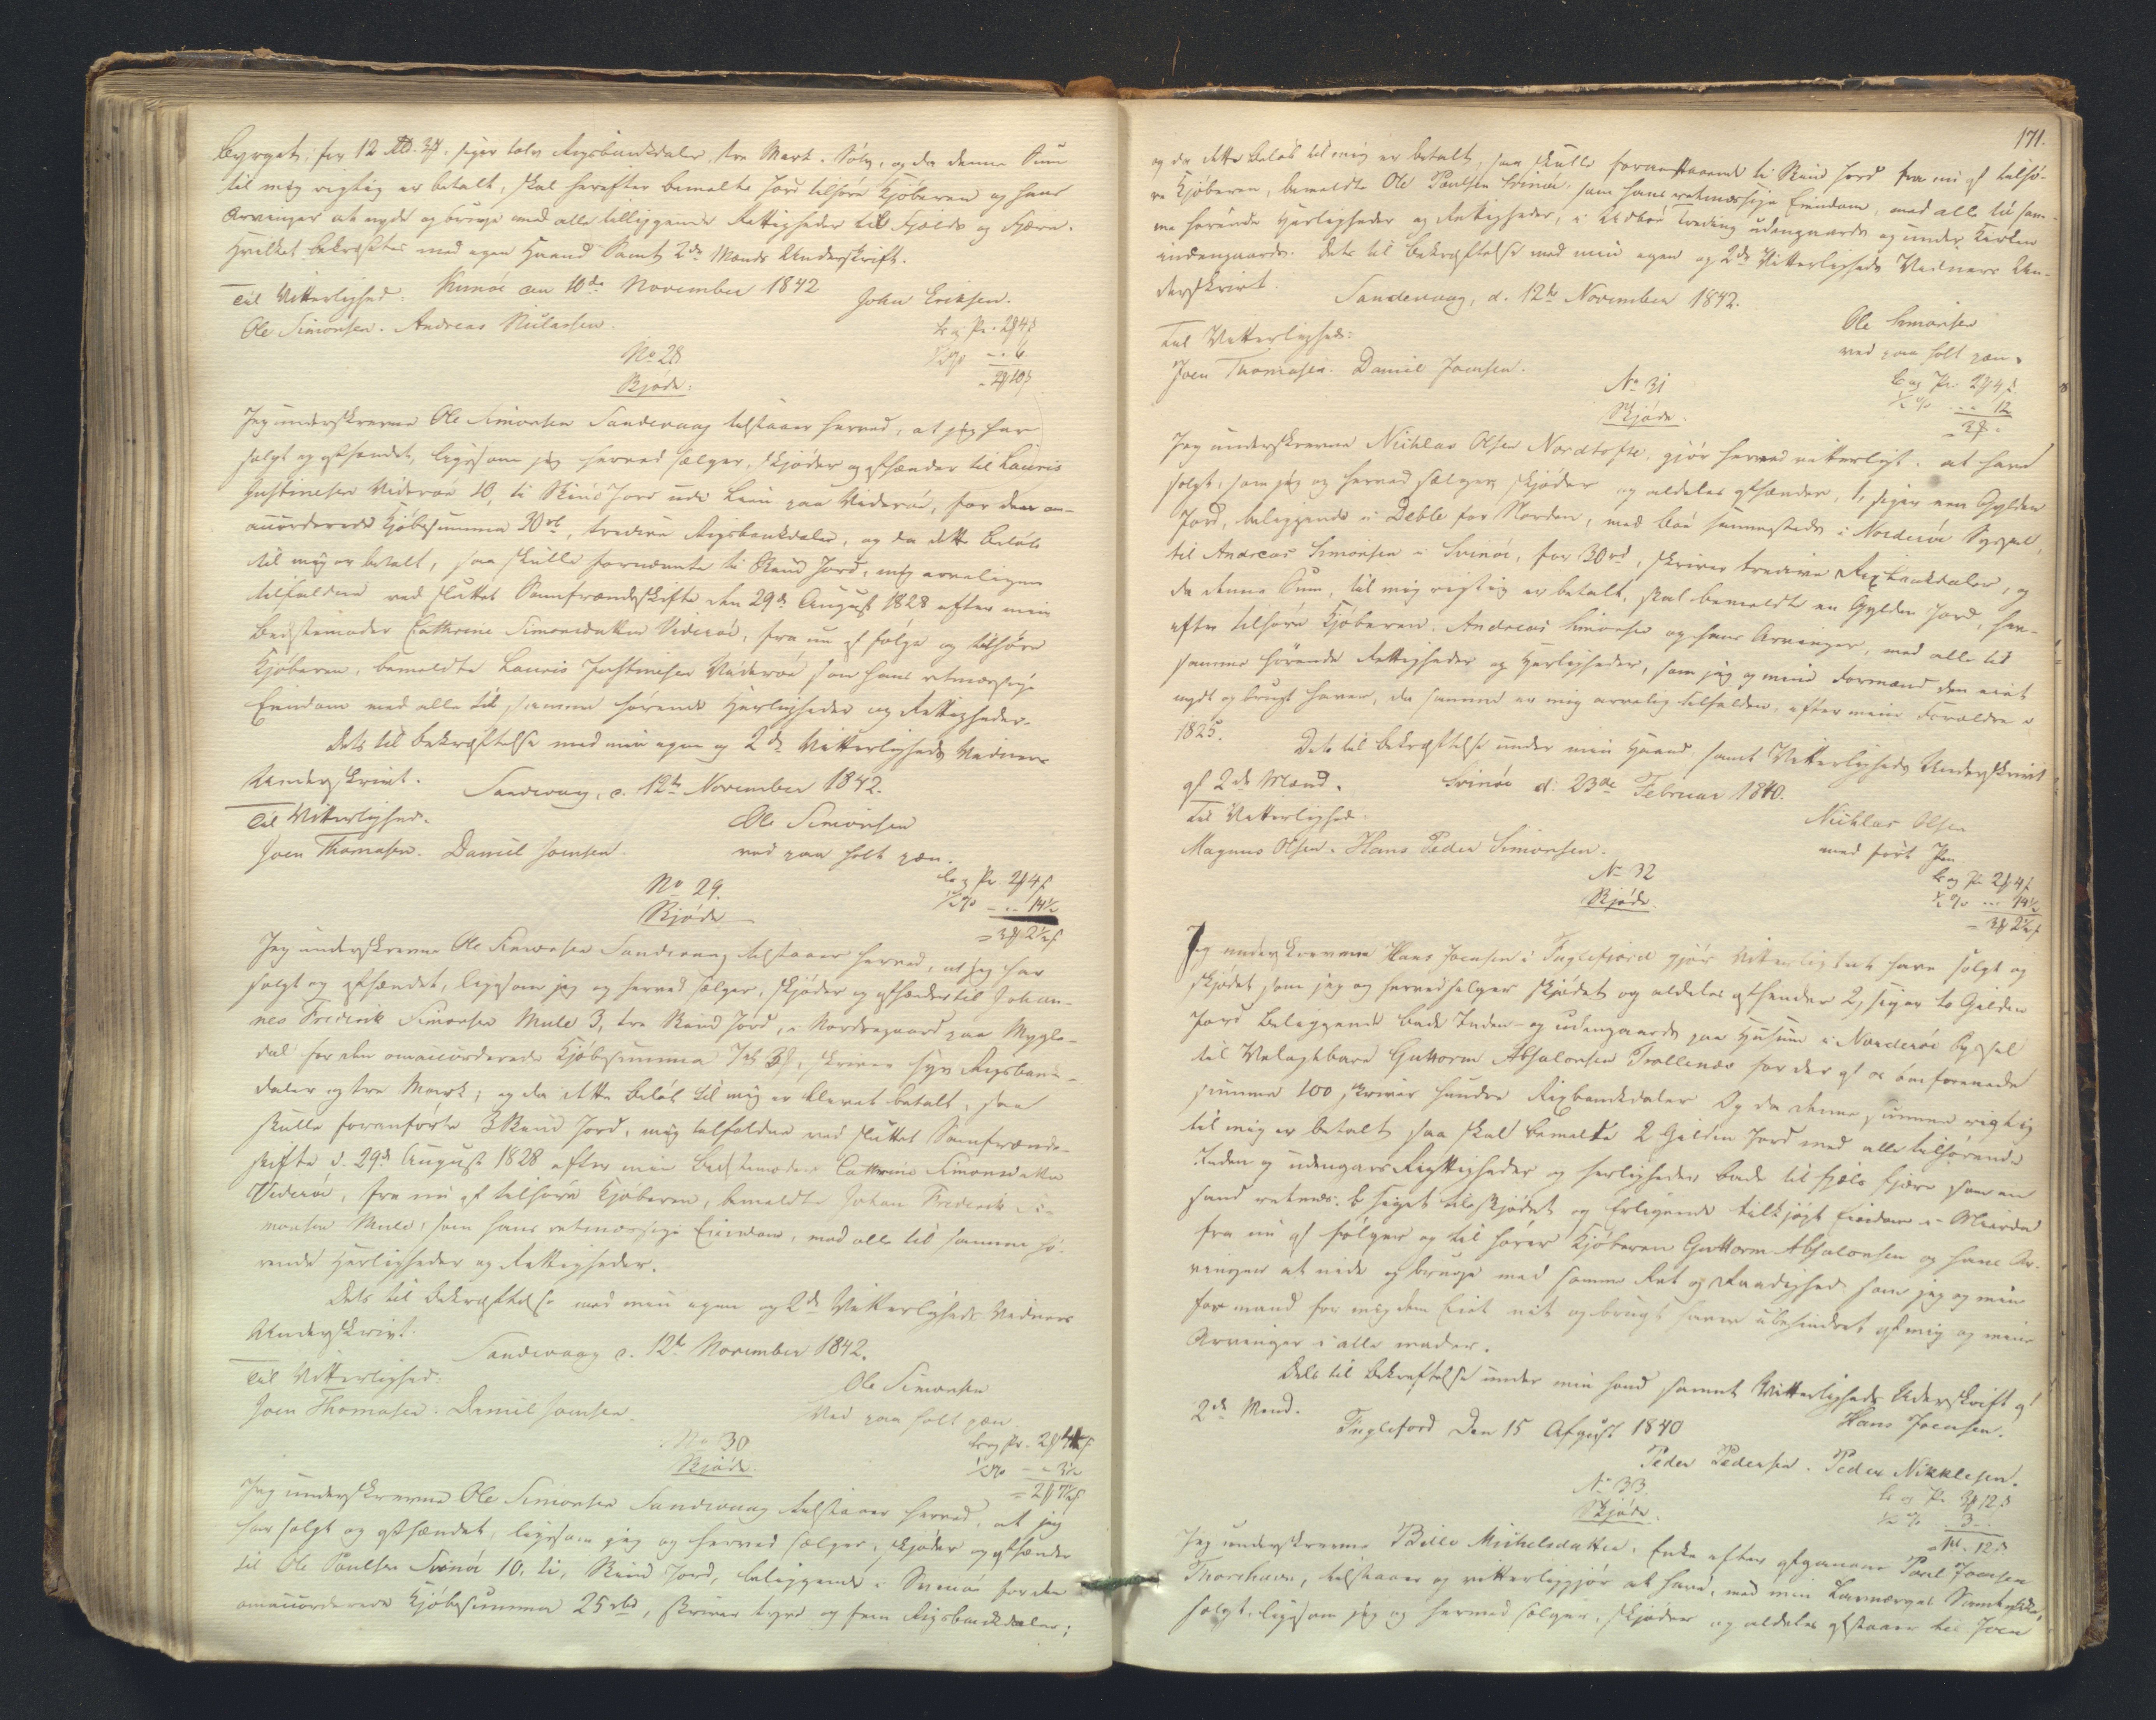 bygget, for 12 Rd. 3 Mk. siger tolv Rigsbankdaler, tre Mark Sølv, og da denne Sum
til mig rigtig er betalt, skal herefter bemelte Jord tilhøre Kjøberen og hans
Arvinger at nyde og bruge med alle tilliggende Rettigheder til Fjelds og Fjære.
Hvilket bekræftes med egen Haand samt 2de Mænds Underskrift.
Kunøe den 10de November 1842
Til Vitterlighed: John Eriksen.
Ole Simonsen. Andreas Niclassen.
No 28
Skjøde:
Jeg underskrevne Ole Simonsen Sandevaag tilstaaer herved, at jeg har
solgt og afhændet, ligesom jeg herved sælger, skjøder og afhænder til Lauris
Justinesen Viderøe 10, ti Skind Jord udi Leun paa Viderøe, for den om-
accorderede Kjøbesumma 30 rd, tredive Rigsbankdaler, og da dette Beløb
til mig er betalt, saa skulle fornævnte ti Skind Jord, mig arveligen
tilfaldne ved sluttet Samfrændeskifte den 29de August 1828 efter min
Bedstemoder Cathrine Simonsdatter Viderøe, fra nu af følge og tilhøre
Kjøberen, bemeldte Lauris Justinesen Viderøe som hans retmæssige
Eiendom med alle til samme hørende Herligheder og Rettigheder.
Dets til Bekræftelse med min egen og 2de Vitterligheds Vidners
Underskrivt.
Sandevaag, d. 12te November 1842.
Til Vitterlighed.
Ole Simonsen
Joen Thomasen. Daniel Joensen. ved paa holt pæn.
No 29.
Skjøde
Jeg underskrevne Ole Simonsen Sandevaag tilstaaer herved, at jeg har
solgt og afhændet, ligesom jeg og herved sælger, skjøder og afhænder til Johan-
nes Frederik Simonsen Mule 3, tre Skind Jord, i Nordregaard paa Mygle-
dal for den omaccorderede Kjøbesumma 7 rd 3 Mk, skriver syv Rigsbank-
daler og tre Mark, og da dette Beløb til mig er blevet betalt, saa
skulle foranførte 3 Skind Jord, mig tilfaldne ved sluttet Samfrænde-
skifte d. 29de August 1828 efter min Bedstemoder Cathrine Simonsdatter
Viderøe, fra nu af tilhøre Kjøberen, bemeldte Johan Frederik Si-
monsen Mule, som hans retmæssige Eiendom, med alle til samme hø-
rende Herligheder og Rettigheder.
Dets til Bekræftelse med min egen og 2de Vitterligheds Vidners
Underskrivt.
Sandevaag d. 12te November 1842.
Til Vitterlighed:
Ole Simonsen
Joen Thomasen. Daniel Joensen. Ved paa holt pæn
No 30
Skjøde.
Jeg underskrevne Ole Simonsen Sandevaag tilstaaer herved, at jeg
har solgt og afhændet, ligesom jeg og herved sælger, skjøder og afhænder
til Ole Poulsen Svinøe 10, ti, Skind Jord, beliggende i Svinøe for den
omaccorderede Kjøbesumma 25 rbd, skriver tyve og fem Rigsbankdaler;
171.
og da dette Beløb til mig er betalt, saa skulle foranstaaende ti Skind Jord fra nu af tilhø-
re Kjøberen, bemeldte Ole Poulsen Svinøe, som hans retmæssige Eiendom, med alle til sam-
me hørende Herligheder og Rettigheder, i Udboe Treding udengaards og under Kirken
indengaards. Dets til Bekræftelse med min egen og 2de Vitterligheds Vidners Un-
derskrivt.
Sandevaag, d. 12te November 1842.
Til Vitterlighed:
Ole Simonsen
Joen Thomasen. Daniel Joensen. ved paa holt pæn.
No 31
Skjøde.
Jeg underskrevne Nichlas Olsen Nordtofte, gjør herved vitterligt: at have
solgt, som jeg og herved sælger, skjøder og aldeles afhænder, 1, siger een Gylden
Jord, beliggende i Deble for Norden, med Boe sammesteds i Norderøe Syssel,
til Andreas Simonsen i Svinøe, for 30 rd, skriver tredive Rixbankdaler, og
da denne Sum, til mig rigtig er betalt, skal bemeldte en Gylden Jord, her-
efter tilhøre Kjøberen, Andreas Simonsen og hans Arvinger, med alle til
samme hørende Rettigheder og Herligheder, som jeg og mine Formænd den eiet
nydt og brugt haver, da samme er mig arvelig tilfalden, efter mine Forældre i
1825. Dets til Bekræftelse under min Haand samt Vitterligheds Underskrivt
af 2de Mænd. Svinøe d. 23de Februar 1840.
Til Vitterlighed.
Nichlas Olsen
Magnus Olsen. Hans Peder Simonsen. med ført Pen
No 32
Skjøde.
Jeg underskrevne Hans Joensen i Fuglefjord gjør vitterligt at have solgt og
skjødet som jeg og herved sælger skjødet og aldeles afhender 2, siger to Gylden
Jord beliggende baade Inden- og udengaards paa Husum i Norderøe Syssel
til Velagtbare Guttorm Absalonsen Trøllenæs for der af os omforenede
summa 100 skriver hundre Rixbankdaler Og da denne summa rigtig
til mig er betalt saa skal bemelte 2 Gylden Jord med alle tilhørende
Inden og udengars Rettigheder og herligheder baade til fjels fjære som en
fra nu af følger og til hører Kjøberen Guttorm Absalonsen og hans Ar-
vinger at nide og bruge med samme Ret og Raadighed som jeg og min
formand for mig dem Eiet nit og brugt haver ubehindret af mig og mine
Arvinger i alle maader.
Dets til Bekræftelse under min hand samt Vitterligheds Underskrift af
2de Mend.
Fuglefjord Den 15 August 1840
Hans Joensen.
Peder Pedersen. Peder Nikklesen.
No 33.
Skjøde.
Jeg underskrevne Bille Michelsdatter, Enke efter afgangne Poul Joensen
Thorshavn, tilstaaer og vitterliggjør at have, med min Laugværges Samtykke,
solgt, ligesom jeg og hermed sælger, skjøder og aldeles afstaaer til Joen